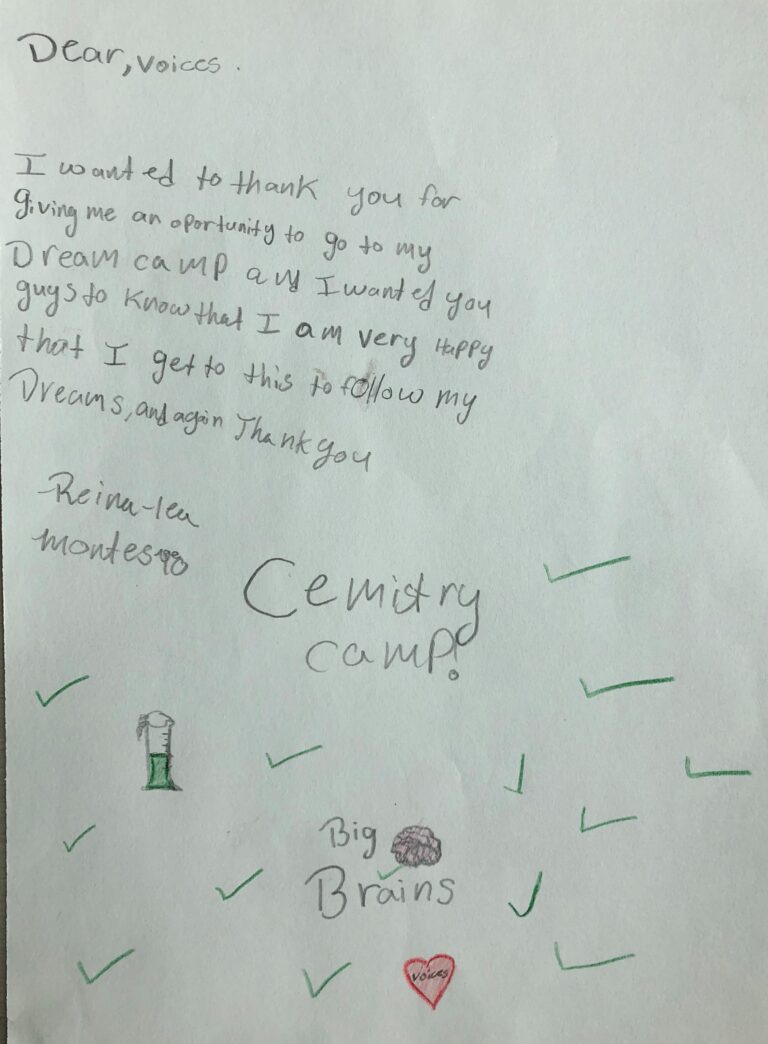 Dear, voices.
I wanted to thank you for
giving me an oportunity to go to my
Dream camp and I wanted you
guys to know that I am very Happy
that I get to this to follow my
Dreams, and again Thank you
Reina-lea
montes
Cemistry
camp!
Big
Brains
voices